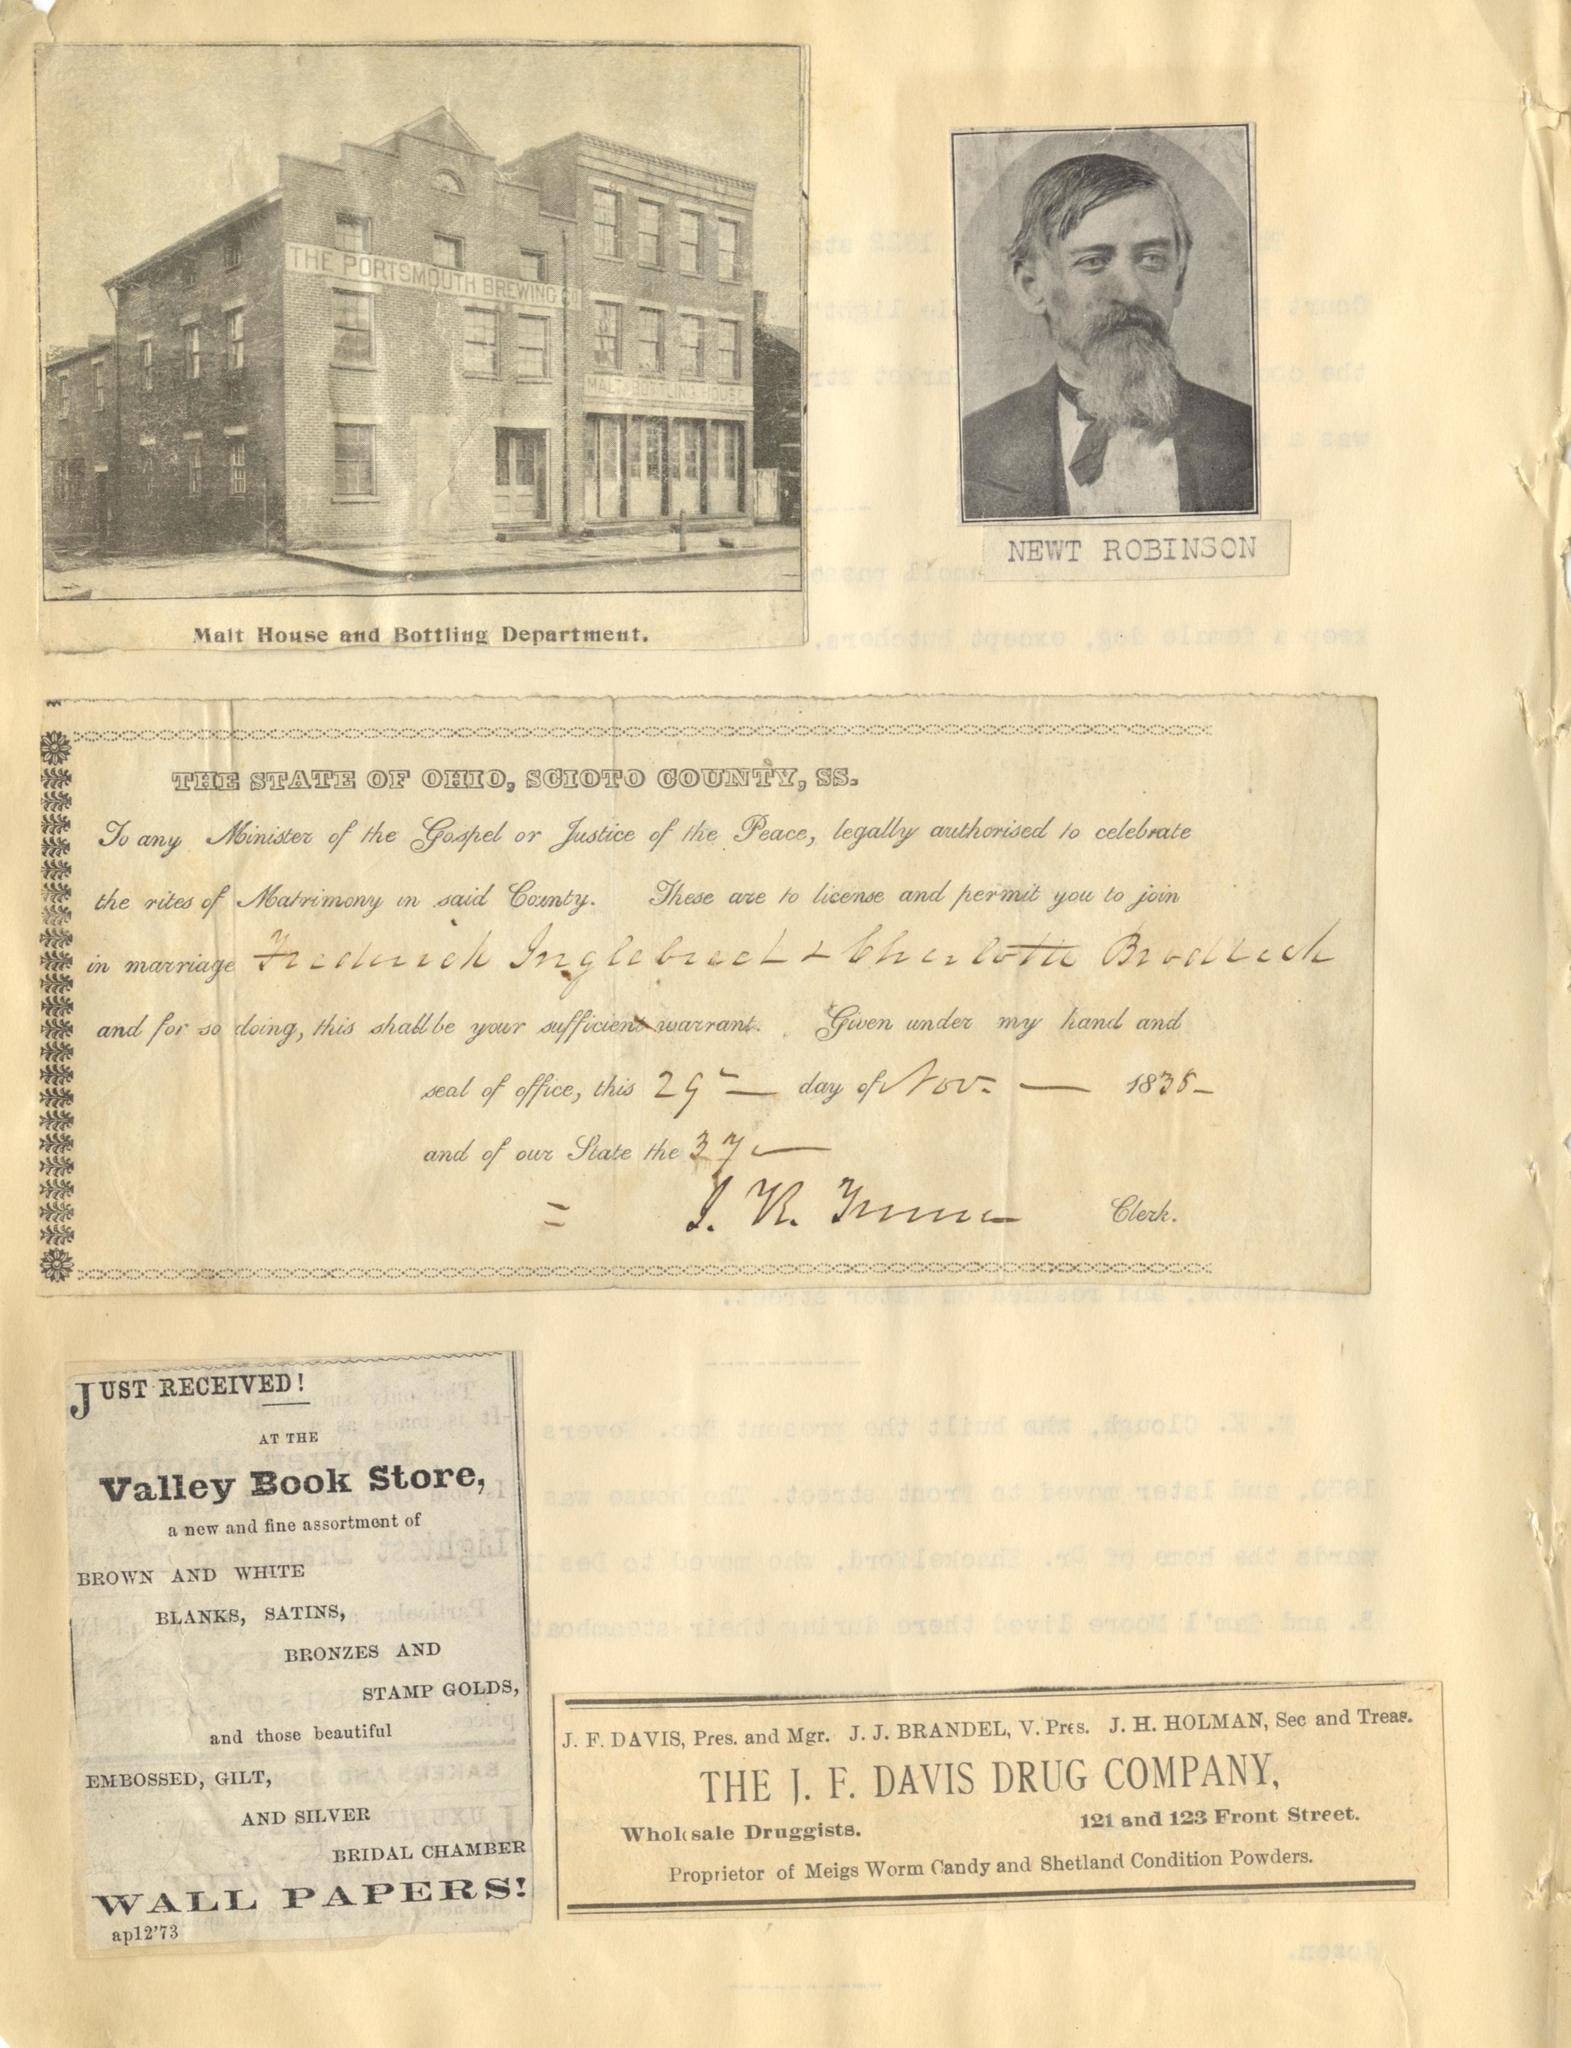 THE PORTSMOUTH BREWING CO
MALT & BOTTLING HOUSE
Malt House and Bottling Department.
NEWT ROBINSON
THE STATE OF OHIO, SCIOTO COUNTY, SS.
To any Minister of the Gospel or Justice of the Peace, legally authorised to celebrate
the rites of Matrimony in said County. These are to license and permit you to join
in marriage Frederick Inglebrecht & Charlotte
and for so doing, this shall be your sufficient warrant. Given under my hand and
seal of office, this 29th day of Nov. 1838
and of our State the 37
J. R. Clerk.
JUST RECEIVED!
AT THE
Valley Book Store,
a new and fine assortment of
BROWN AND WHITE
BLANKS, SATINS,
BRONZES AND
STAMP GOLDS,
and those beautiful
EMBOSSED, GILT,
AND SILVER
BRIDAL CHAMBER
WALL PAPERS!
ap12'73
J. F. DAVIS, Pres. and Mgr. J. J. BRANDEL, V. Pres. J. H. HOLMAN, Sec and Treas.
THE J. F. DAVIS DRUG COMPANY,
Wholesale Druggists. 121 and 123 Front Street.
Proprietor of Meigs Worm Candy and Shetland Condition Powders.